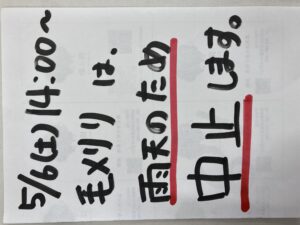 5/6(土)14:00〜
毛メリリは、
雨天のため
中止します。